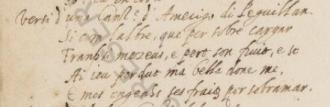 versi) una Canz.e d'Amerigo di Peguillan.
Si com l'arbre, que per sobre cargar
Franh si mezeus, e pert son fruit, e se
Ai ieu perdut ma bella dona, e me,
E mos engenhs ses fraitz per sobramar.